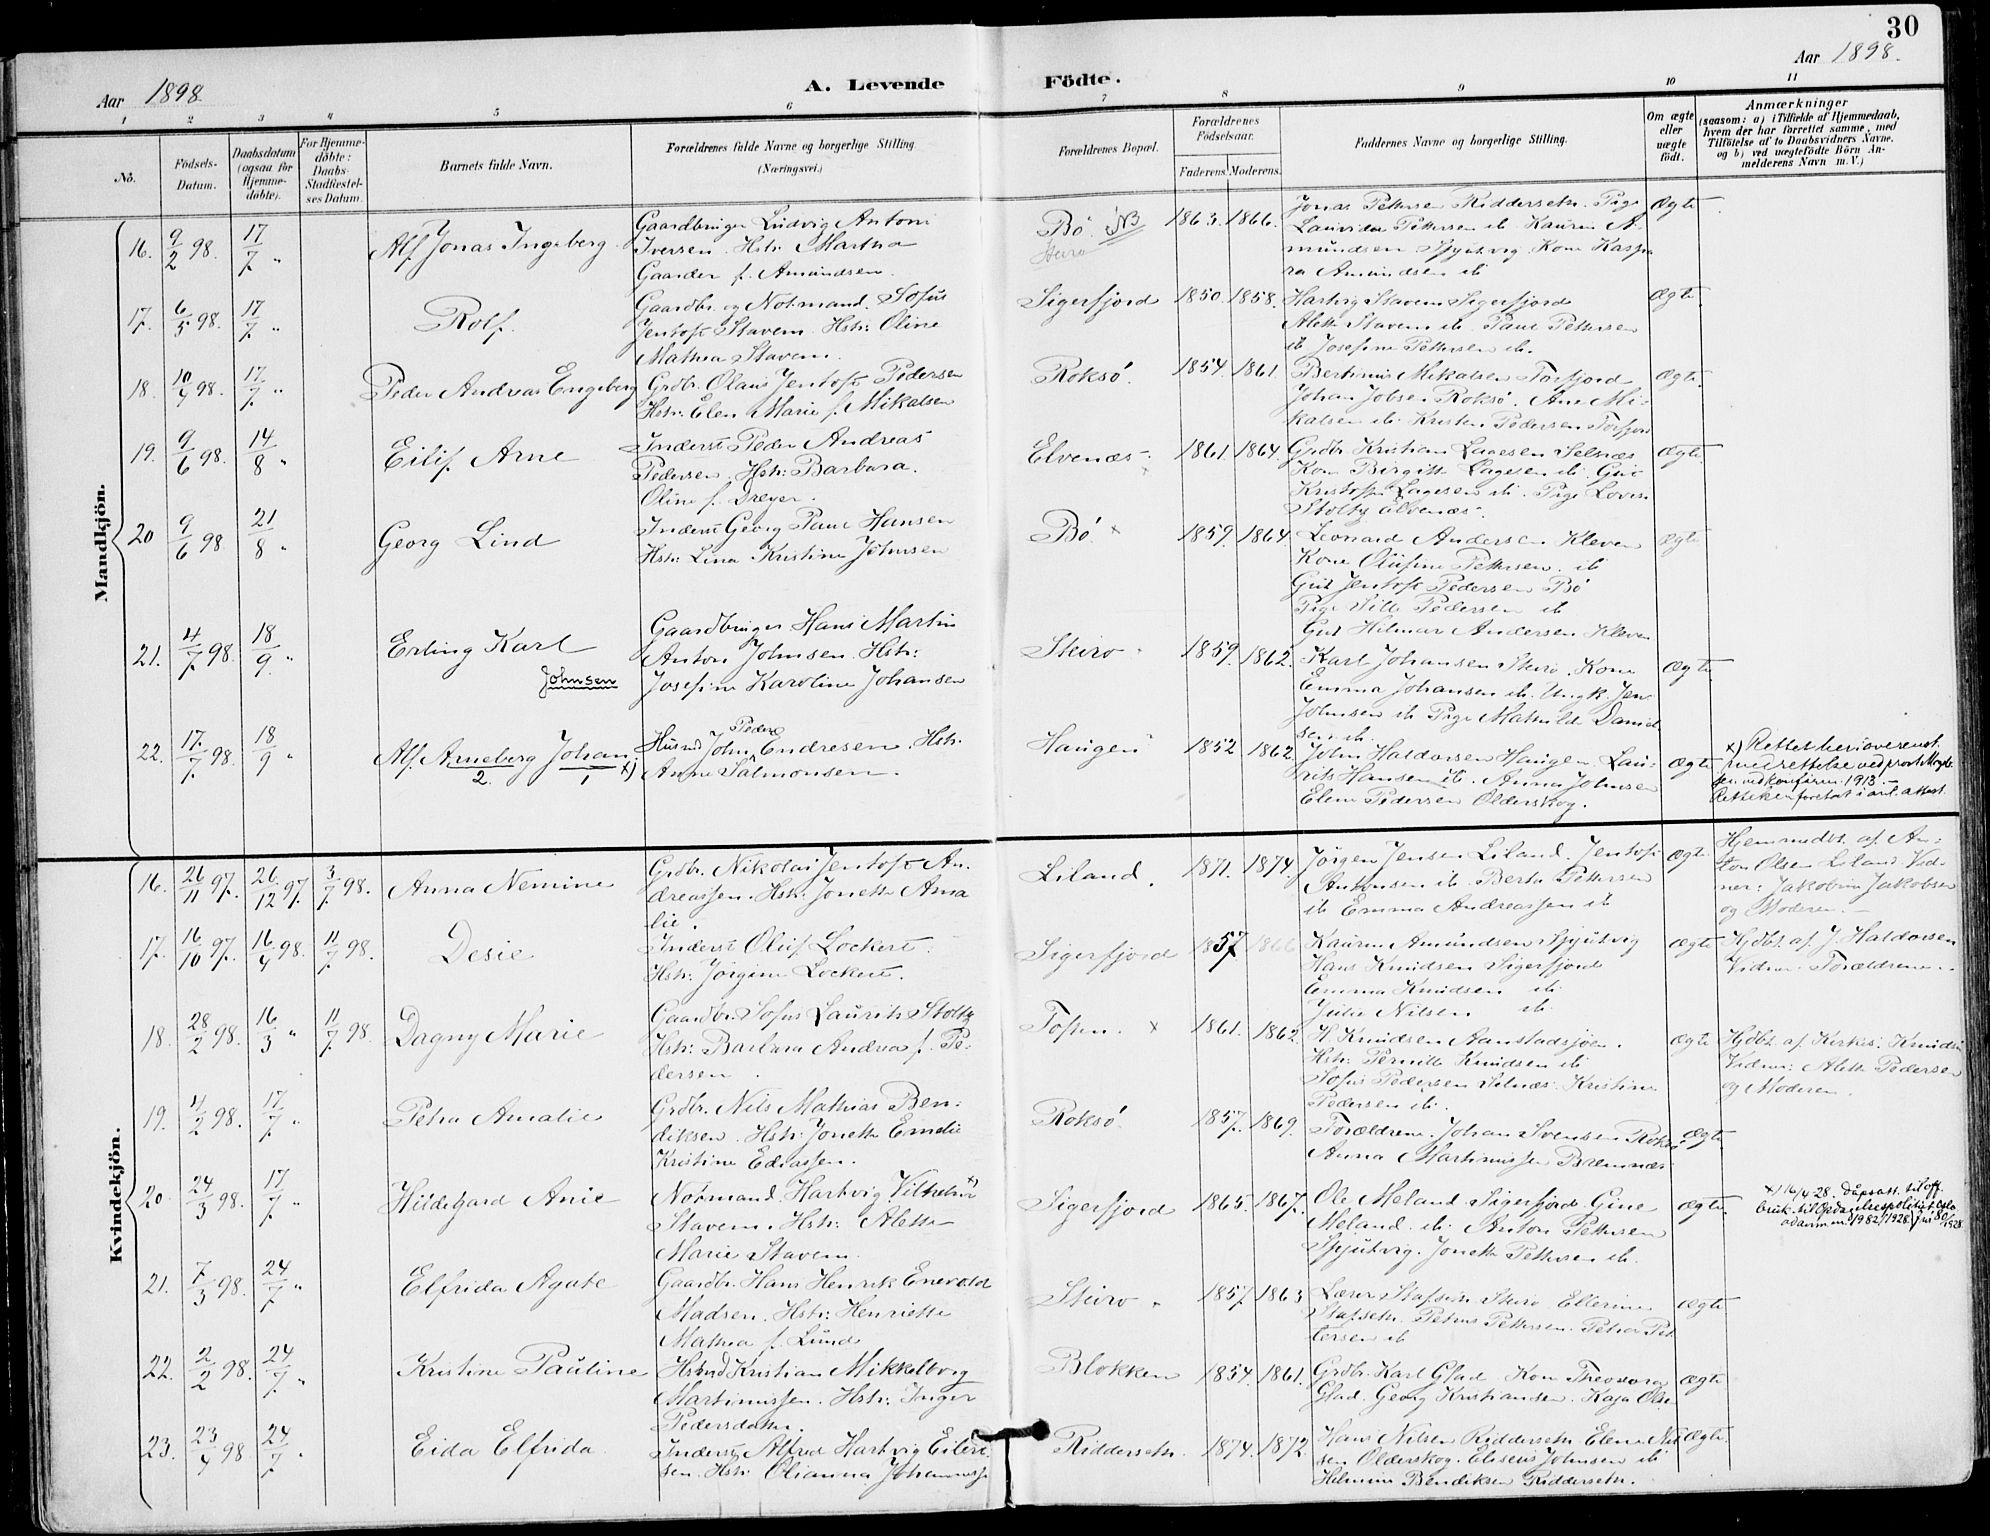 30
Aar 1898.
A. Levende
Födte.
Aar 1898.
1 2 3 4 5 6 7 8 9 10 11
No.
Födsels-
Datum.
Daabsdatum
(ogsaa for
Hjemme-
døbte).
For Hjemme-
døbte:
Daabs-
Stadfæstel-
ses Datum.
Barnets fulde Navn.
Forældrenes fulde Navne og borgerlige Stilling
(Næringsvei.)
Forældrenes Bopæl.
Forældrenes
Födselsaar.
Faderens. Moderens.
Faddernes Navne og borgerlige Stilling.
Om ægte
eller
uægte
født.
Anmærkninger
(saasom: a) i Tilfælde af Hjemmedaab,
hvem der har forrettet samme, med
Tilföielse af to Daabsvidners Navne.
og b) ved uægtefödte Börn An-
melderens Navn m. V.)
Mandkjön.
16. 9/2 98. 17/7 "
Alf Jonas Ingeberg
Gaardbruger Ludvig Antoni
Iversen. Hstr. Martha
Gaarder f. Amundsen.
Bö. NB
1863. 1866.
Jonas Pettersen Ridderseth. Pige
Lauvida Pettersen ib. Kauren A-
mundsen Spjutvig. Kone Kaspa
ra Amundsen ib
Ægte
17. 6/5 98. 17/7 "
Rolf.
Gaardbr. og Notmand. Sofus
Jentoft Stavem. Hstr: Oline
Mathea Stavem.
Sigerfjord
1850. 1858.
Hartvig Stavem Sigerfjord
Alette Stavem ib. Paul Pettersen
ib Josefine Pettersen ib.
Ægte
18. 10/4 98. 17/7 "
Peder Andreas Engeberg
Grdbr. Olaus Jentoft Pedersen
Hstr: Elen Marie f. Mikalsen
Roksö.
1854. 1861.
Bertinius Mikalsen Forfjord
Johan Jobsen Roksö. Ane Mi-
kalsen ib. Kristen Pedersen Forfjord
Ægte
19. 9/6 98. 14/8 "
Eilif Arne
Inderst Peder Andreas
Pedersen. Hstr: Barbara.
Oline f. Dreyer.
Elvenæs.
1861 1864.
Grdbr Kristian Lagesen Selnæs
Kone Birgitte Lagesen ib. Gut
Kristoffer Lagesen ib. Pige Lovise
Stoltz Elvenæs.
Ægte.
20 9/6 98. 21/8 "
Georg Lind
Inderst Georg Paul Hansen
Hstr: Lina Kristine Johnsen
Bö. x
1859. 1864.
Leonard Andersen Kleven
Kone Olufine Pettersen. ib
Gut Jentoft Pedersen Bö
Pige Sille Pedersen ib
Gut Hilmar Andersen Kleven
Ægte
21. 4/7 98. 18/9 "
Erling Karl
Johnsen
Gaardbruger Hans Martin
Anton Johnsen. Hstr:
Josefine Karoline Johansen
Steiro.
1859. 1862.
Karl Johansen Steiro. Kone
Emma Johansen ib. Ungk. Jen
Johnsen ib Pige Mathilde Daniel
sen ib.
Ægte
22. 17/7 98. 18/9 "
Alf Arneberg Johan x)
2. 1
Husmd John Peder Endresen. Hstr.
Anne Salmonsen.
Haugen
1852 1862.
John Haldorsen Haugen. Lau-
rits Hansen ib. Anna Johnsen
Elene Pedersen Olderskog.
Ægte
x) Rettet her i overenst.
med rettelse ved
ved konfirm. 1913.
Kvindekjön.
16. 26/11 97. 26/12 97. 3/7 98.
Anna Nemine
Grdbr. Nikolai Jentoft An-
dreassen. Hstr: Jonette Ama
lie.
Liland.
1871. 1874.
Jörgen Jensen Liland. Jentoft
Antonsen ib. Berta Pettersen
ib Emma Andreassen ib
Ægte
Hjemmedbt. af An-
ton Olsen Liland. Vid-
ner: Jakobine Jakobsen
og Moderen.
17. 16/10 97. 16/4 98. 11/7 98.
Desie
Inderst Oluf Lockert.
Hstr: Jörgine Lockert.
Sigerfjord
1857 1866
Kauren Amundsen Spjutvig
Hans Knudsen Sigerfjord
Emma Knudsen ib
Julie Nilsen ib.
Ægte
Hjdbt. af J. Haldorsen
Vidner: Forældrene.
18. 28/2 98. 16/3 " 11/7 98.
Dagny Marie
Gaardbr. Sofus Laurits Stoltz
Hstr: Barbara Andrea f. Pe-
dersen.
x
1861. 1862.
H. Knudsen Aanstadsjöen.
Hstr: Pernille Knudsen ib
Sofus Pedersen Selnæs. Kristine
Pedersen ib.
Ægte
Hjdbt. af Kirkes. Knudsen
Vidner: Alette Pedersen
og Moderen.
19. 4/2 98. 17/7 "
Petra Amalie
Grdbr. Nils Mathias Ben-
diksen. Hstr: Jonette Emelie
Kristine Ediassen.
Roksö.
1857. 1869.
Forældrene. Johan Svensen Roksö
Anna Martinussen Bremnæs.
Ægte
20 24/3 98. 17/7 "
Hildegard Anie
Notmand. Hartvig Vilhelm x)
Stavem. Hstr: Alette
Marie Stavem.
Sigerfjord
1865. 1867.
Ole Meland Sigerfjord Gine
Meland. ib. Anton Pettersen
Spjutvig. Jonette Pettersen ib.
Ægte.
x) 16/4-28. Dåpsatt. til off.
bruk.
21. 7/3 98. 24/7 "
Elfrida Agate
Gaardbr. Hans Henrik Enevold
Madsen. Hstr: Henriette
Mathea f. Lund
Steiro.
1857. 1863
Lærer Stafseth Steiro Ellerine
Stafseth. Petrus Pettersen. Petra Pet
tersen ib
Ægte
22. 2/2 98. 24/7 "
Kristine Pauline
Husmd Kristian Mikkelborg
Martinussen. Hstr: Inger
Pedersdatter.
Blokken
1854. 1861.
Grdbr. Karl Glad. Kone Theodora
Glad. Georg Kristiansen. Kaja Olse
Ægte
23. 23/4 98 24/7 "
Eida Elfrida
Inderst Alfred Hartvig Eilert
sen. Hstr Olianna Johanness
Ridderseth.
1874. 1872.
Hans Nilsen Ridderseth Elene Nil
sen Olderskog. Eliseus Johnsen ib
Helmine Bendiksen Ridderseth.
Ægte.